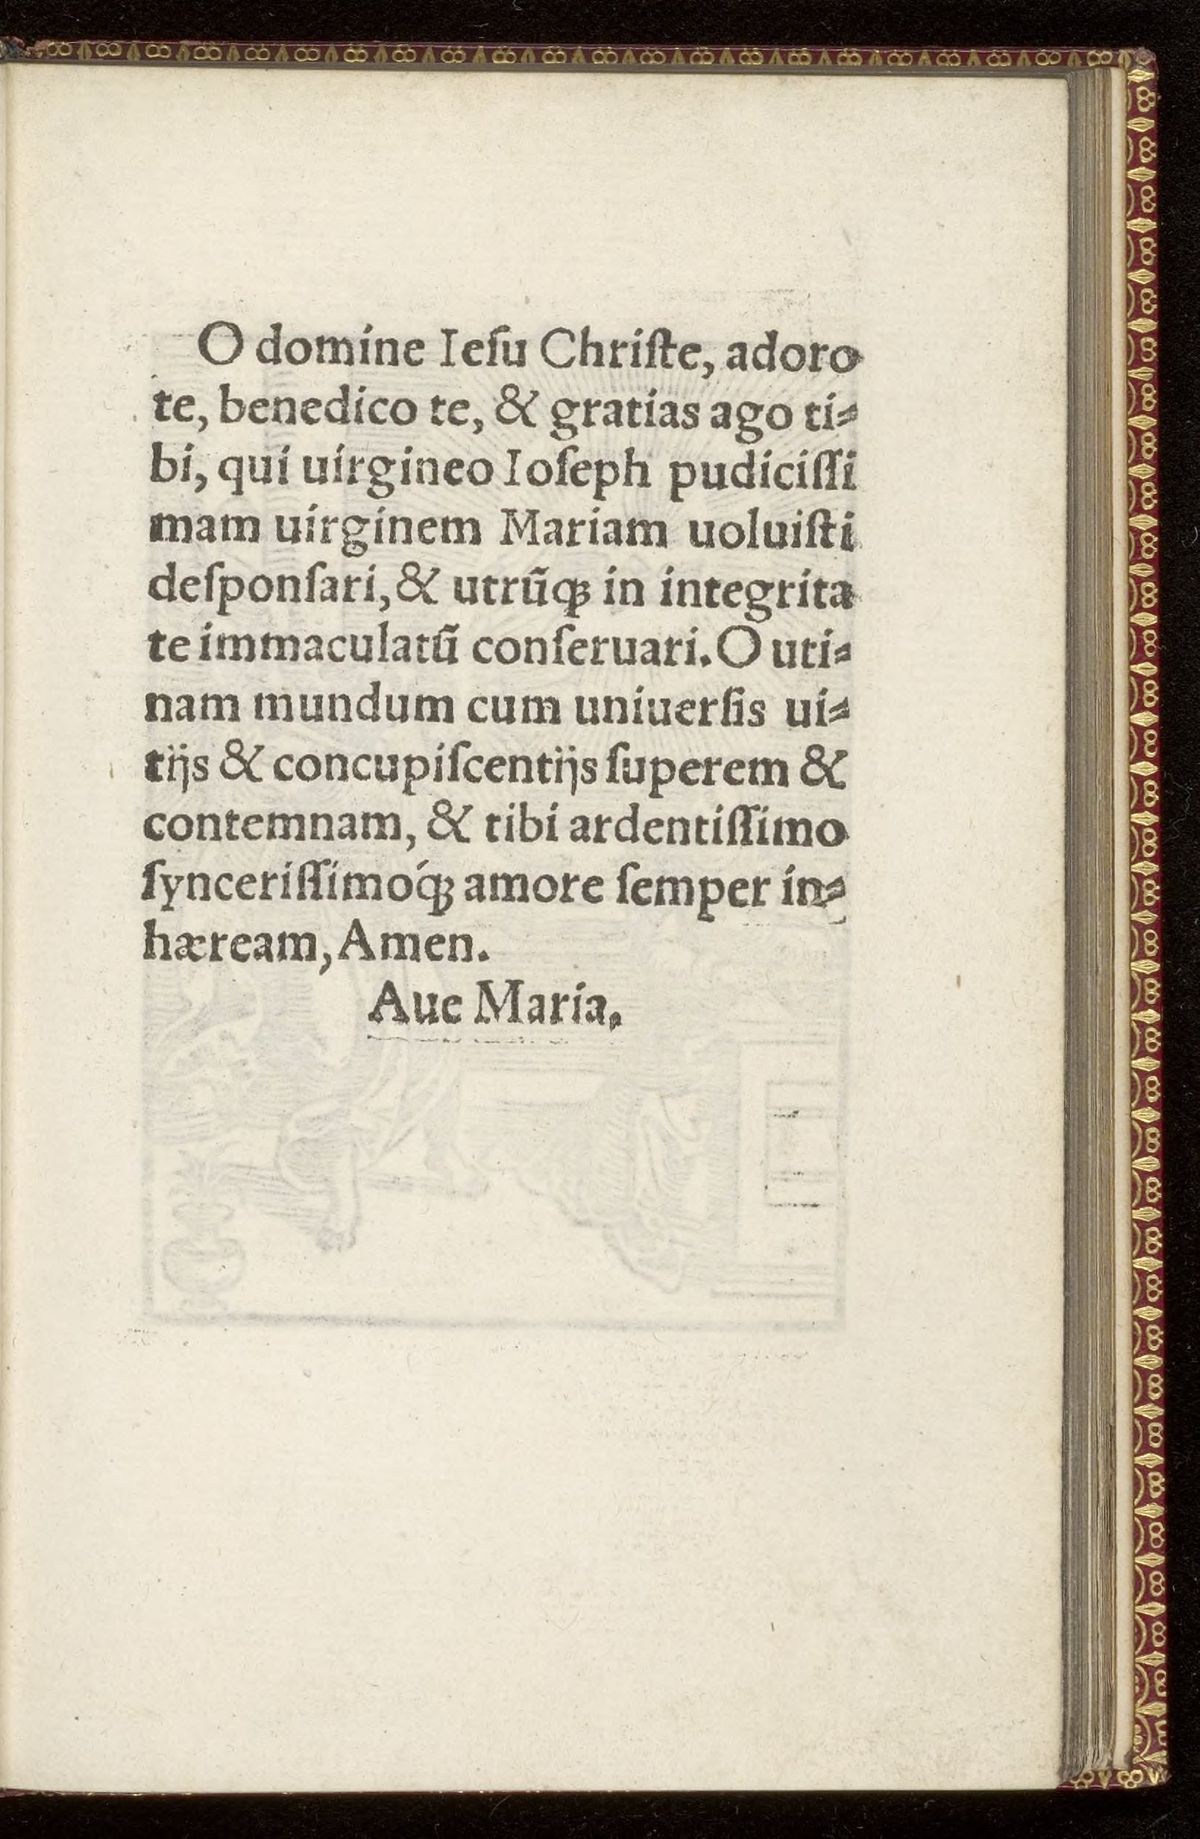 O domine Iesu Christe, adoro
te, benedico te, & gratias ago ti⸗
bi, qui uirgineo Ioseph pudicissi
mam uirginem Mariam uoluisti
desponsari, & utrũq; in integrita
te immaculatũ conseruari. O uti⸗
nam mundum cum uniuersis ui⸗
tijs & concupiscentijs superem &
contemnam, & tibi ardentissimo
syncerissimóq; amore semper in⸗
hæream, Amen.
Aue Maria.